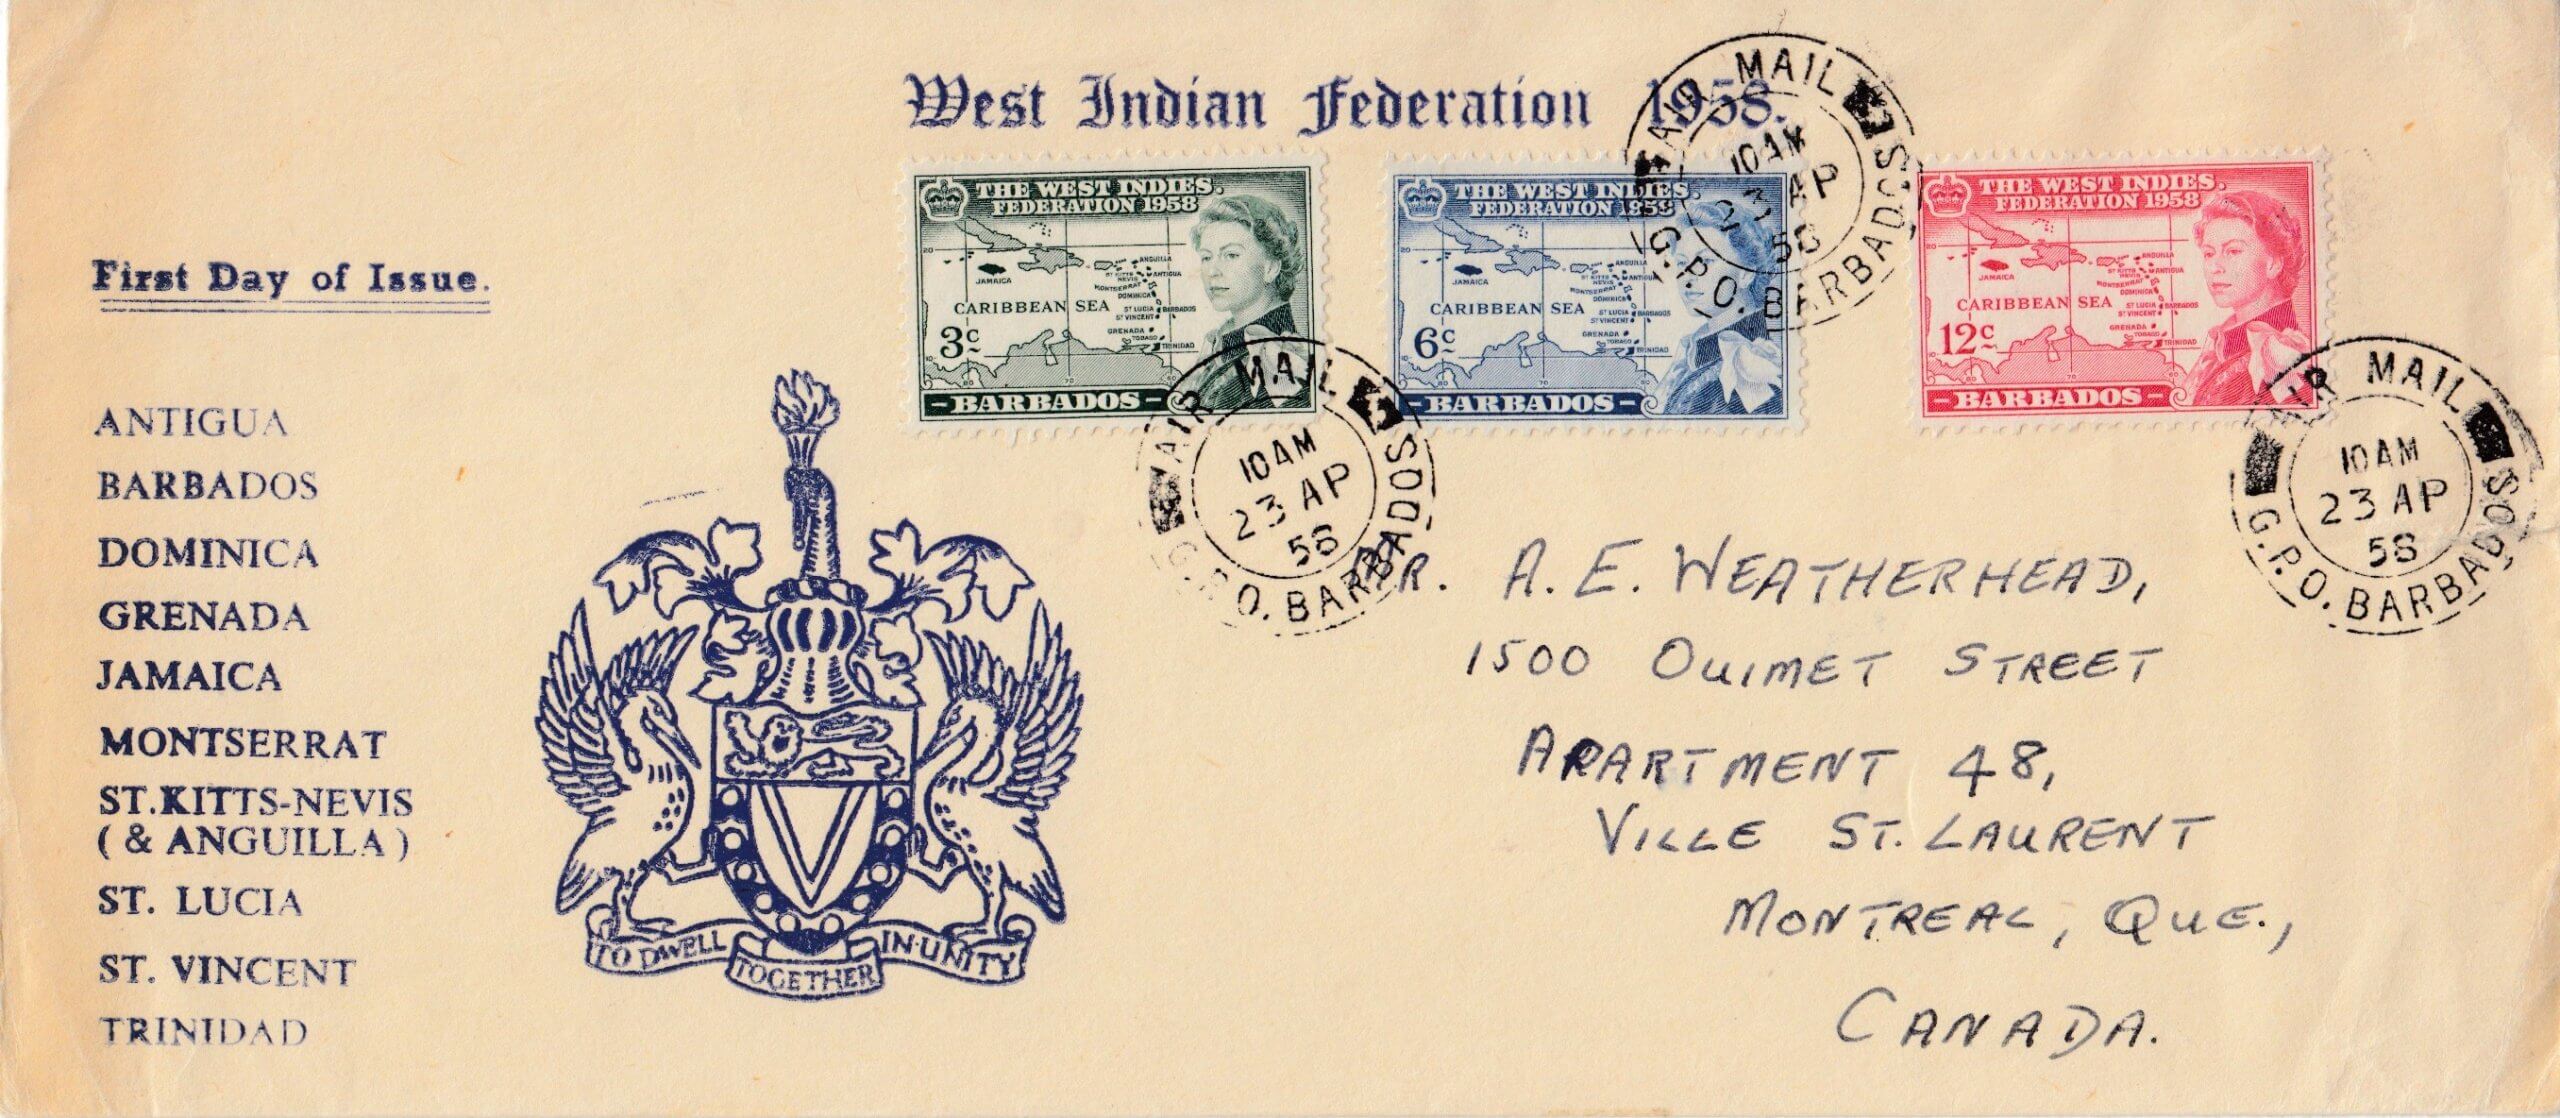 West Indian Federation 1958.
First Day of Issue.
ANTIGUA
BARBADOS
DOMINICA
GRENADA
JAMAICA
MONTSERRAT
ST. KITTS-NEVIS
(& ANGUILLA)
ST. LUCIA
ST. VINCENT
TRINIDAD
TO DWELL TOGETHER IN·UNITY
THE WEST INDIES.
FEDERATION 1958
ANGUILLA
ST KITTS
NEVIS
ANTIGUA
JAMAICA
MONTSERRAT
DOMINICA
CARIBBEAN SEA
ST LUCIA
BARBADOS
ST VINCENT
GRENADA
TOBAGO
TRINIDAD
3c
- BARBADOS -
THE WEST INDIES.
FEDERATION 1958
ANGUILLA
ST KITTS
NEVIS
ANTIGUA
JAMAICA
MONTSERRAT
DOMINICA
CARIBBEAN SEA
ST LUCIA
BARBADOS
ST VINCENT
GRENADA
TOBAGO
TRINIDAD
6c
- BARBADOS -
THE WEST INDIES.
FEDERATION 1958
ANGUILLA
ST KITTS
NEVIS
ANTIGUA
JAMAICA
MONTSERRAT
DOMINICA
CARIBBEAN SEA
ST LUCIA
BARBADOS
ST VINCENT
GRENADA
TOBAGO
TRINIDAD
12c
- BARBADOS -
AIR MAIL
10 AM
23 AP
58
G.P.O. BARBADOS
AIR MAIL
10 AM
23 AP
58
G.P.O. BARBADOS
AIR MAIL
10 AM
23 AP
58
G.P.O. BARBADOS
A. E. WEATHERHEAD,
1500 OUIMET STREET
APARTMENT 48,
VILLE ST. LAURENT
MONTREAL, QUE.,
CANADA.